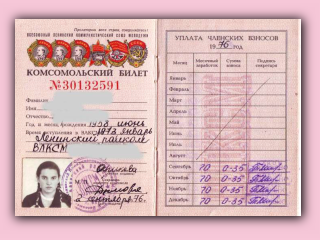 Пролетарии всех стран, соединяйтесь!
ВСЕСОЮЗНЫЙ ЛЕНИНСКИЙ КОММУНИСТИЧЕСКИЙ СОЮЗ МОЛОДЕЖИ
КОМСОМОЛЬСКИЙ БИЛЕТ
№30132591
Фамилия
Год и месяц рождения 1958, июнь
Время вступления в ВЛКСМ 1973 январь
Ленинский райком
ВЛКСМ
2 сентября 76.
УПЛАТА ЧЛЕНСКИХ ВЗНОСОВ
1976 год
Месяц Месячный заработок Взнос Подпись секретаря
Январь
Февраль
Март
Апрель
Май
Июнь
Июль
Август
Сентябрь 70 0-35
Октябрь 70 0-35
Ноябрь 70 0-35
Декабрь 70 0-35